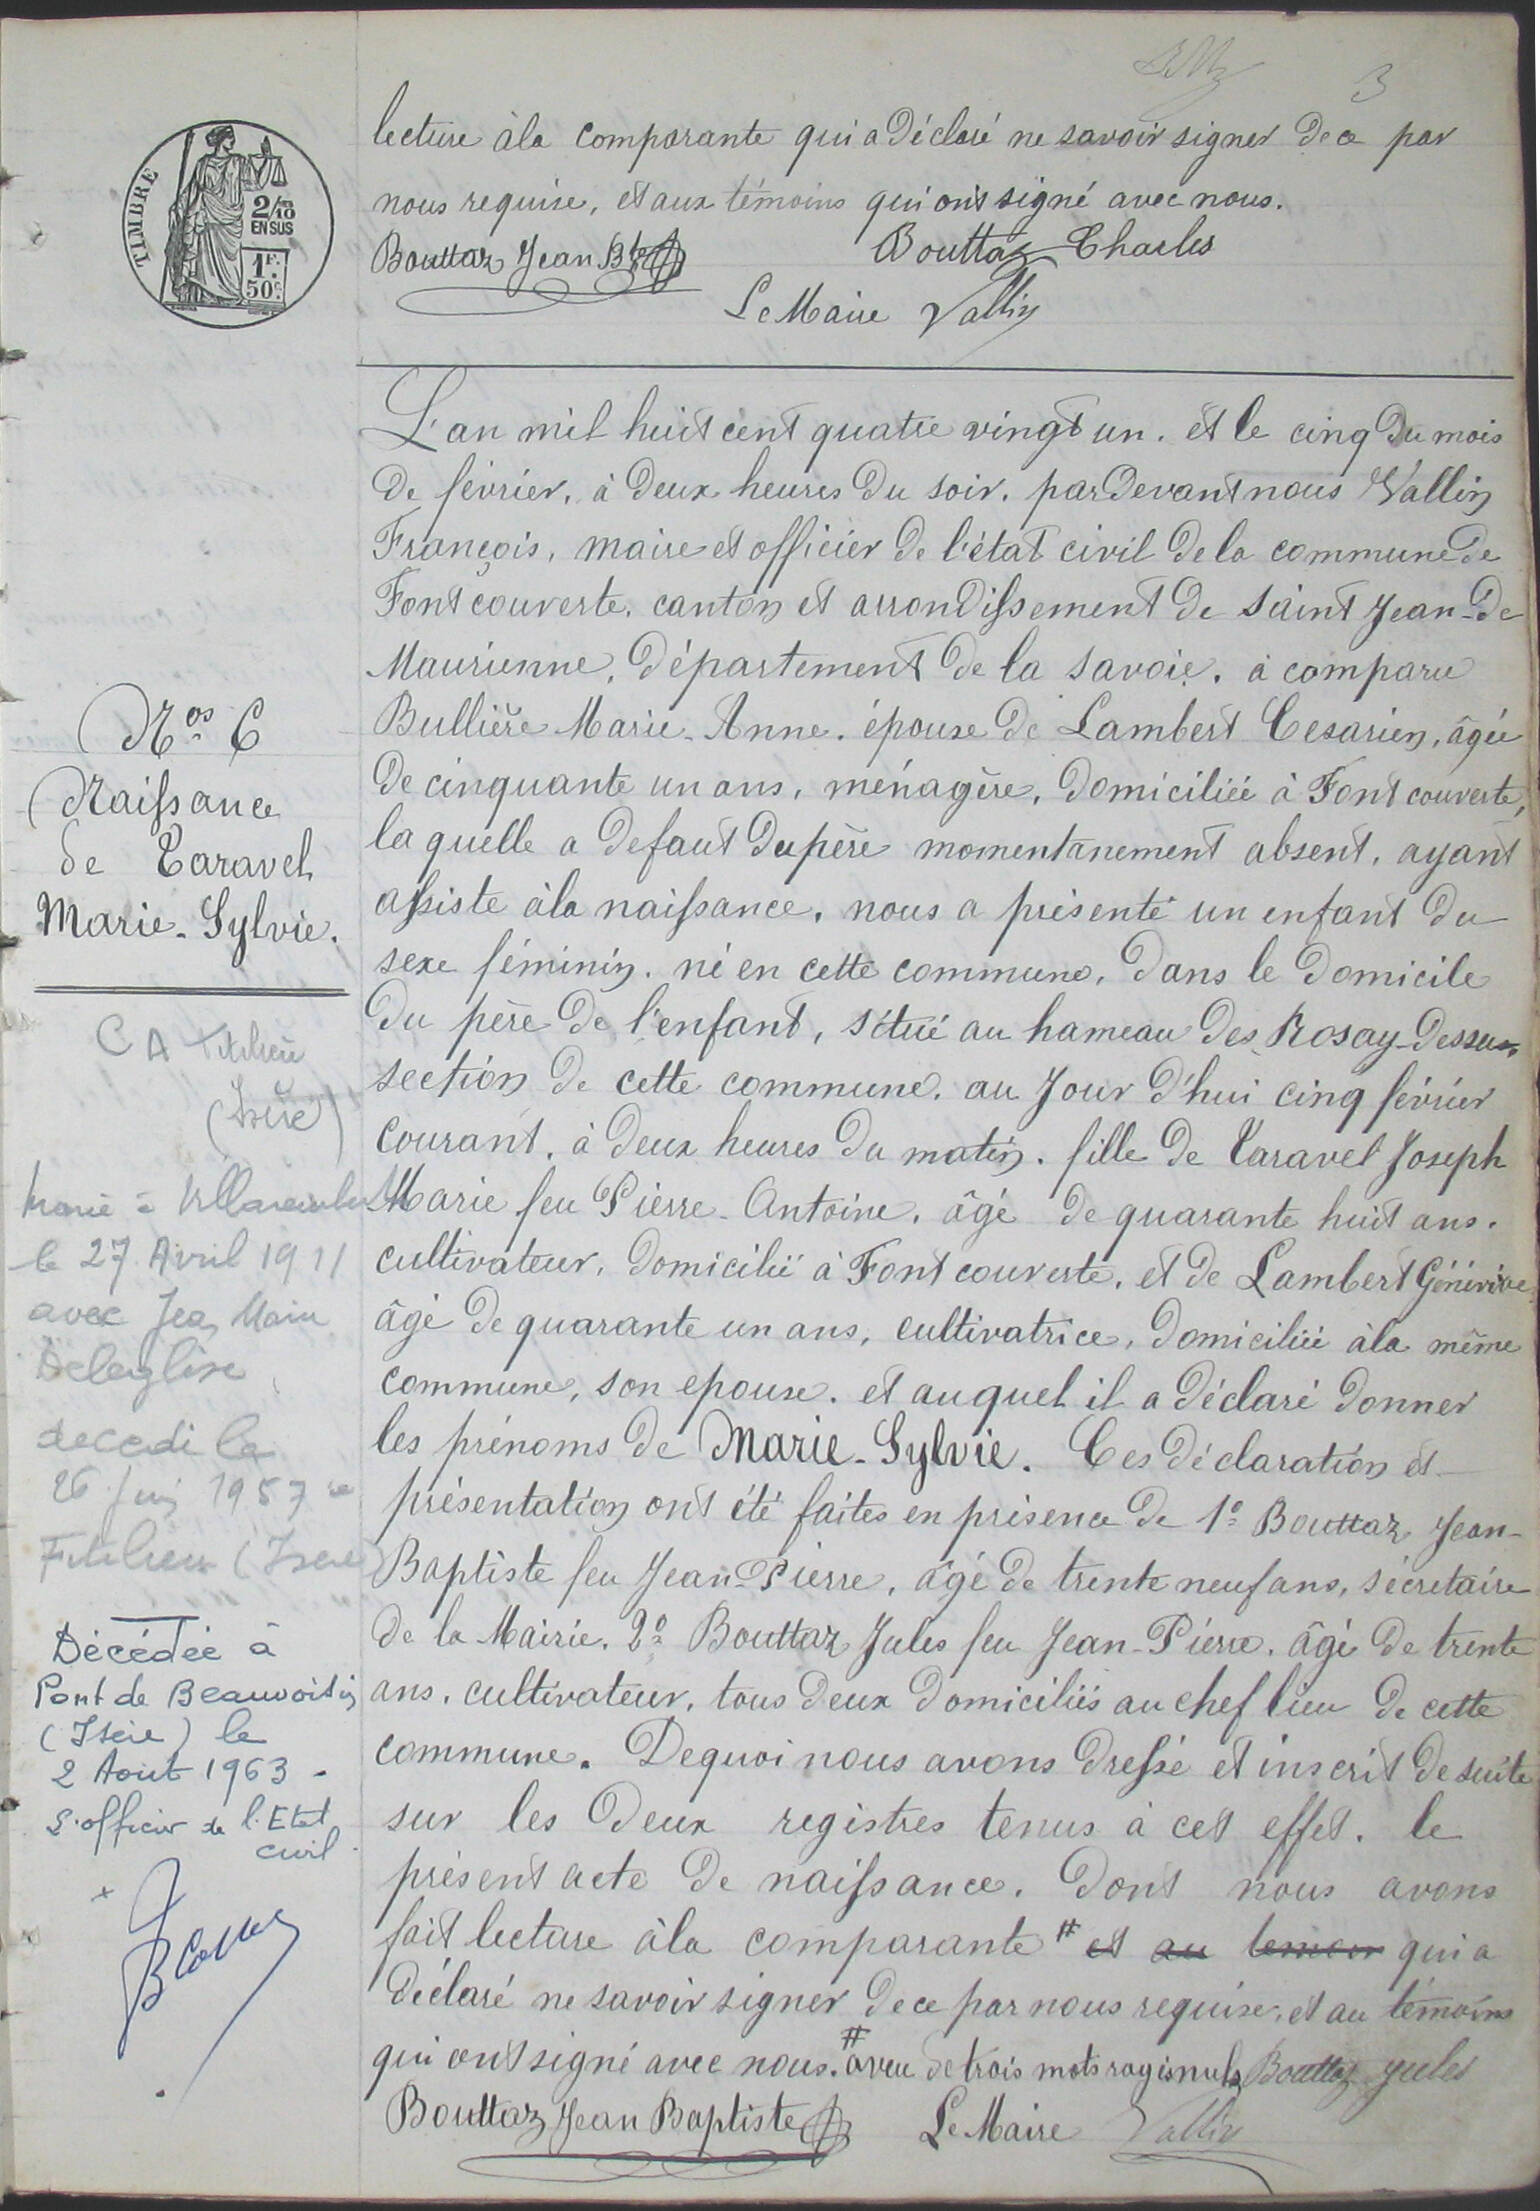 3
lecture à la comparante qui a déclaré ne savoir signer de ce par
nous requise, et aux témoins qui ont signé avec nous.
Bouttaz Jean Bte Bouttaz Charles
Le Maire Vallin
TIMBRE
2/10 EN SUS
1F. 50c.
L'an mil huit cent quatre vingt un. et le cinq du mois
de février, à deux heures du soir. pardevant nous Vallin
François, maire et officier de l'état civil de la commune de
Fontcouverte. canton et arrondissement de Saint Jean-de
Maurienne, département de la Savoie. a comparu
Bullière Marie-Anne. épouse de Lambert Cesarien, âgée
de cinquante un ans, ménagère, domiciliée à Fontcouverte,
laquelle a defaut du père momentanement absent, ayant
assiste à la naissance. nous a présenté un enfant du
sexe féminin. né en cette commune, dans le domicile
du père de l'enfant, situé au hameau des Rosay-Dessus
section de cette commune. au jour d'hui cinq février
courant, à deux heures du matin. fille de Taravel Joseph
Marie feu Pierre-Antoine, âgé de quarante huit ans.
cultivateur, domicilié à Fontcouverte, et de Lambert Généviève
âgé de quarante un ans, cultivatrice, domiciliée à la même
commune, son epouse. et auquel il a déclaré donner
les prénoms de Marie-Sylvie. Ces déclaration et
présentation ont été faites en présence de 1º Bouttaz Jean-
Baptiste feu Jean-Pierre, âgé de trente neuf ans, sécretaire
de la Mairie. 2º Bouttaz Jules feu Jean-Pierre. âgé de trente
ans. cultivateur, tous deux domiciliés au chef lieu de cette
commune. De quoi nous avons dressé et inscrit de suite
sur les deux registres tenus à cet effet. le
présent acte de naissance. dont nous avons
fait lecture à la comparante # et au temoin qui a
déclaré ne savoir signer de ce par nous requise, et au témoins
qui ont signé avec nous. # aveu de trois mots rayés nuls Bouttaz Jules
Bouttaz Jean Baptiste Le Maire Vallin
Nos 6
Naissance
de Taravel
Marie-Sylvie.
C A
(Isère)
Marié à
le 27 Avril 1911
avec Jean Marie
Deleglise
decedé le
26 1957
(Isère)
Décédée à
Pont de Beauvoisin
(Isère) le
2 Août 1963 -
L'officier de l'Etat
civil